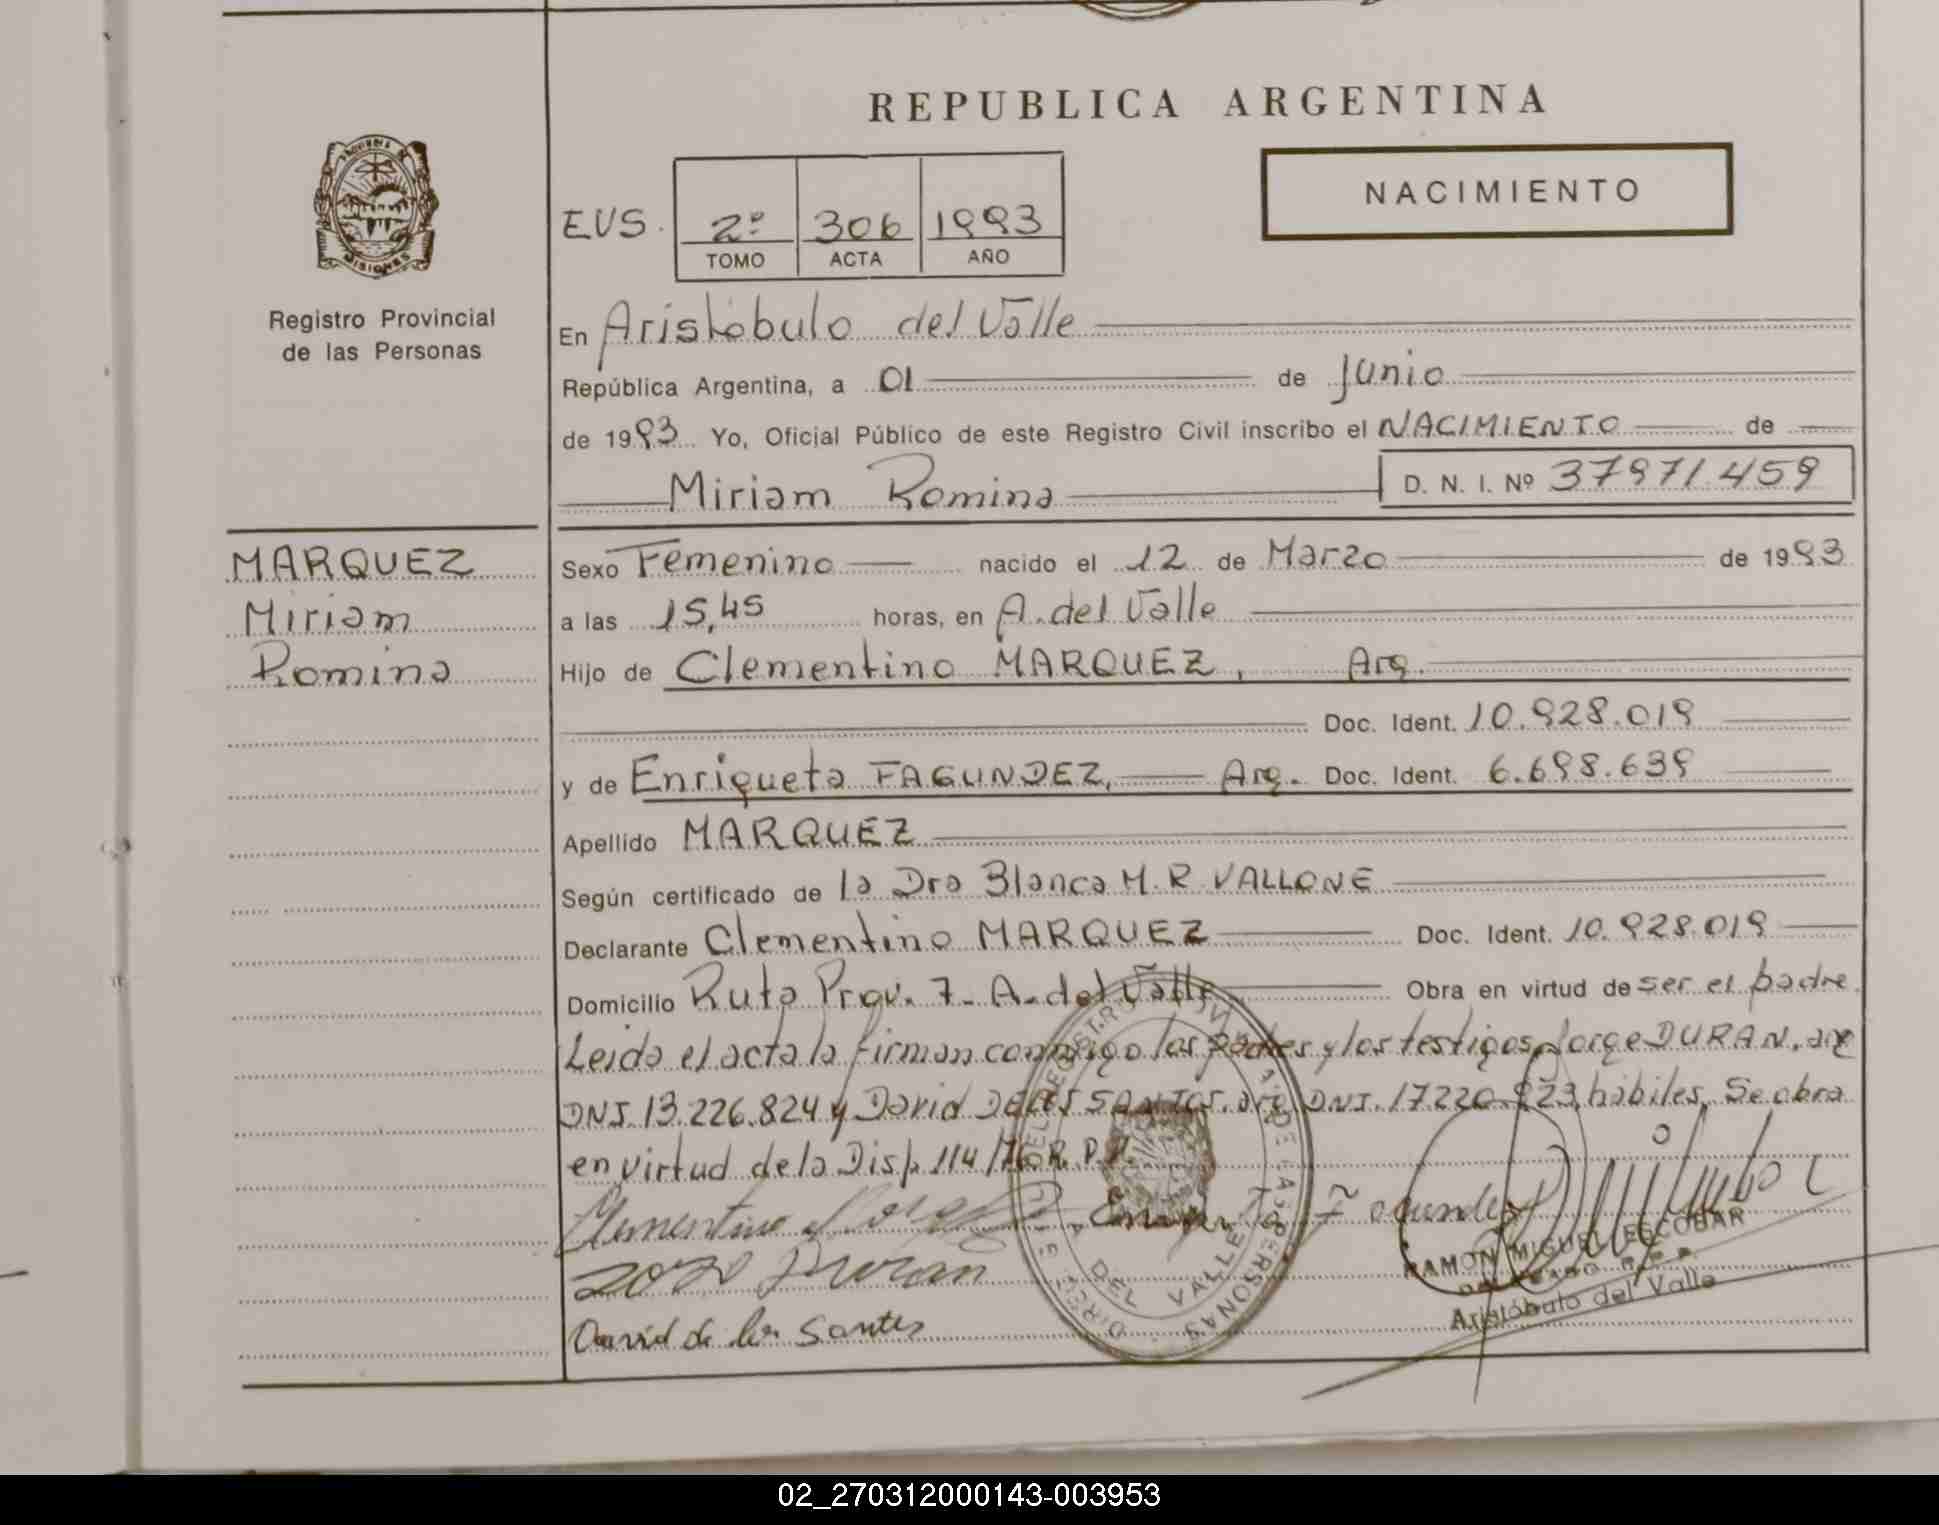 REPUBLICA ARGENTINA
NACIMIENTO
EUS. 2º 306 1993
TOMO ACTA AÑO
MISIONES
Registro Provincial
de las Personas
En Aristóbulo del Valle
República Argentina, a 01 de Junio
de 1993 Yo, Oficial Público de este Registro Civil inscribo el NACIMIENTO de
Miriam Romina D. N. I. Nº 37971.459
MARQUEZ
Miriam
Romina
Sexo Femenino nacido el 12 de Marzo de 1993
a las 15,45 horas, en A. del Valle
Hijo de Clementino MARQUEZ, Arg.
Doc. Ident. 10.928.019
y de Enriqueta FAGUNDEZ, Arg. Doc. Ident. 6.698.639
Apellido MARQUEZ
Según certificado de la Dra Blanca M. R VALLONE
Declarante Clementino MARQUEZ Doc. Ident. 10.928.019
Domicilio Ruta Prov. 7- A. del Valle Obra en virtud de ser el padre
Leida el acta la firman conmigo los padres y los testigos Jorge DURAN, arg
DNI. 13.226.824 y David DE LOS SANTOS, arg DNI. 17.220.923, hábiles. Se obra
en virtud de la Disp. 114/76 R. P. P.
Clementino Fagundez
Duran
David de los Santos
RAMON MIGUEL ESCOBAR
Aristóbulo del Valle
DEL VALLE
02_270312000143-003953